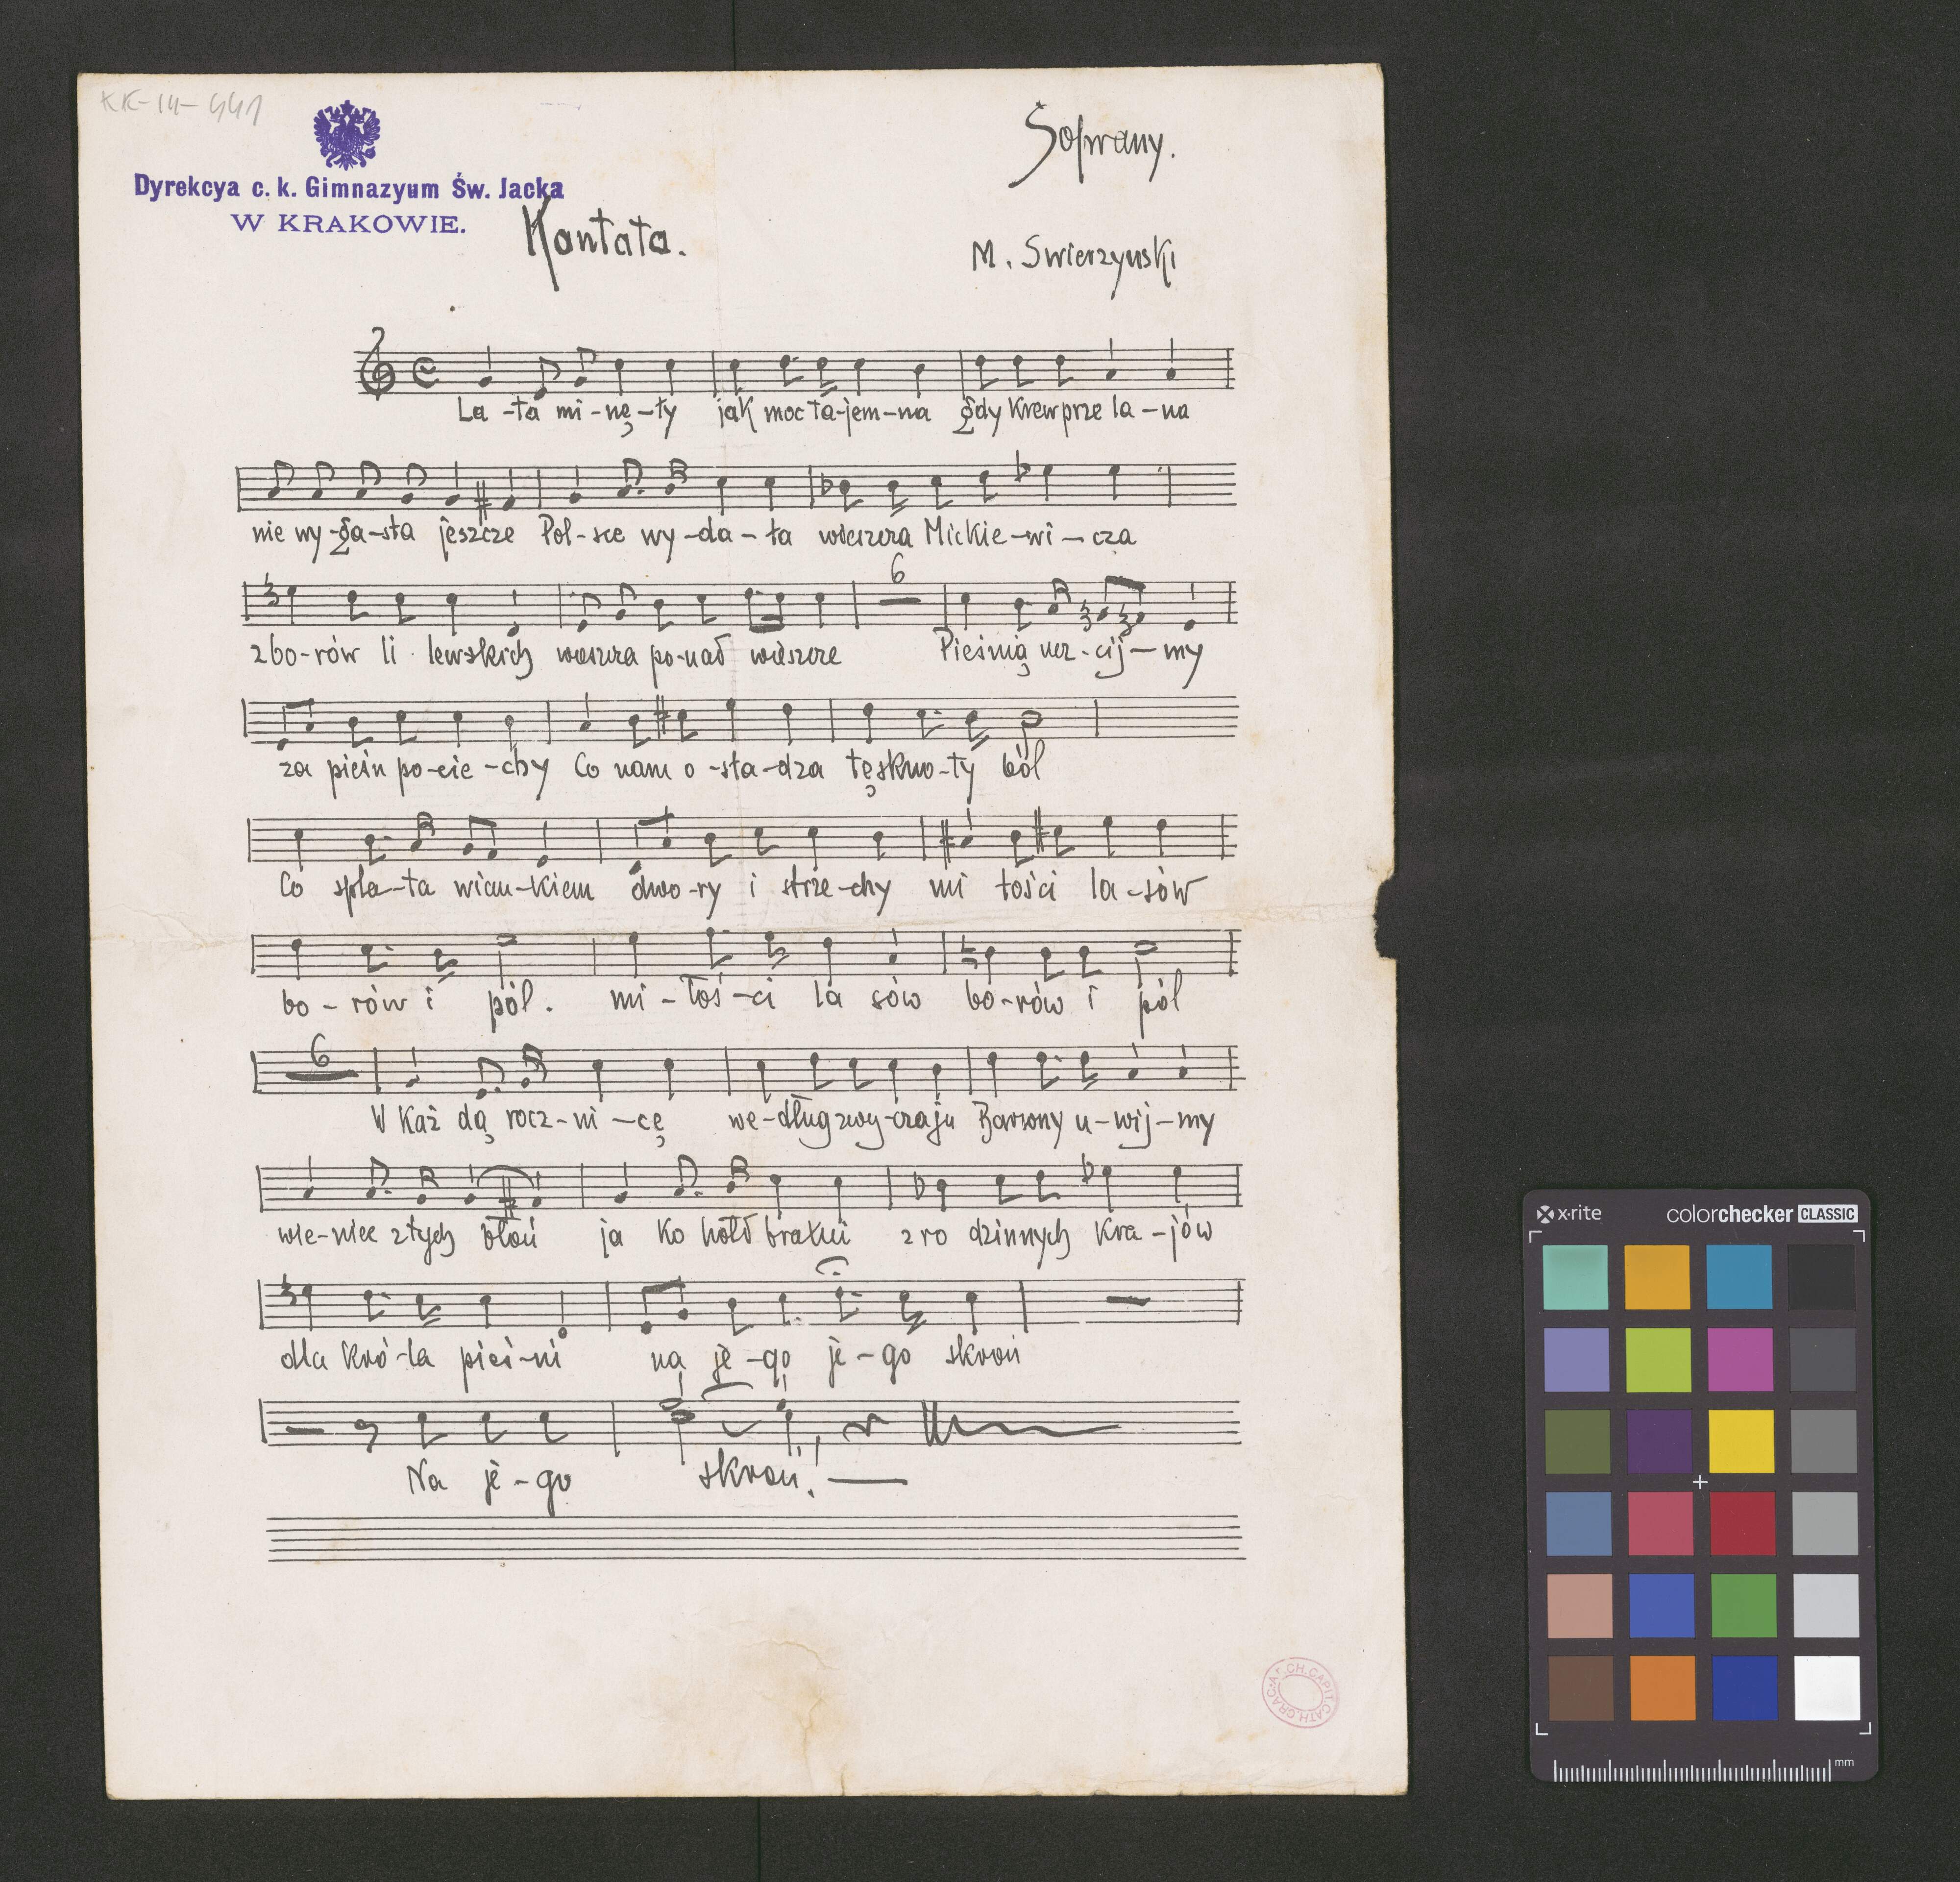 KK-14-441
Soprany.
Dyrekcya c. k. Gimnazyum Św. Jacka
W KRAKOWIE.
Kantata.
M. Swierzynski
La-ta mi-nę-ły jak moc ta-jem-na gdy Krew prze la-na
nie wy-ga-sła jeszcze Pol-sce wy-da-ła wieszcza Mickie-wi-cza
6
z bo-rów li lewskich wieszcza po-nad wieszcze Pieśnią ucz-cij-my
za pieśn po-cie-chy Co nam o-sła-dza tęskno-ty ból
Co spla-ta wian-kiem dwo-ry i strze-chy mi łości la-sów
bo-rów i pól. mi-łoś-ci la sów bo-rów i pól
6
W Każ dą rocz-ni-cę we-dług zwy-czaju u-wij-my
wie-niec z tych błoń ja ko hołd bratni z ro dzinnych kra-jów
dla kró-la pieś-ni na je-go je-go skroń
Na je-go skroń!
x-rite
colorchecker CLASSIC
mm